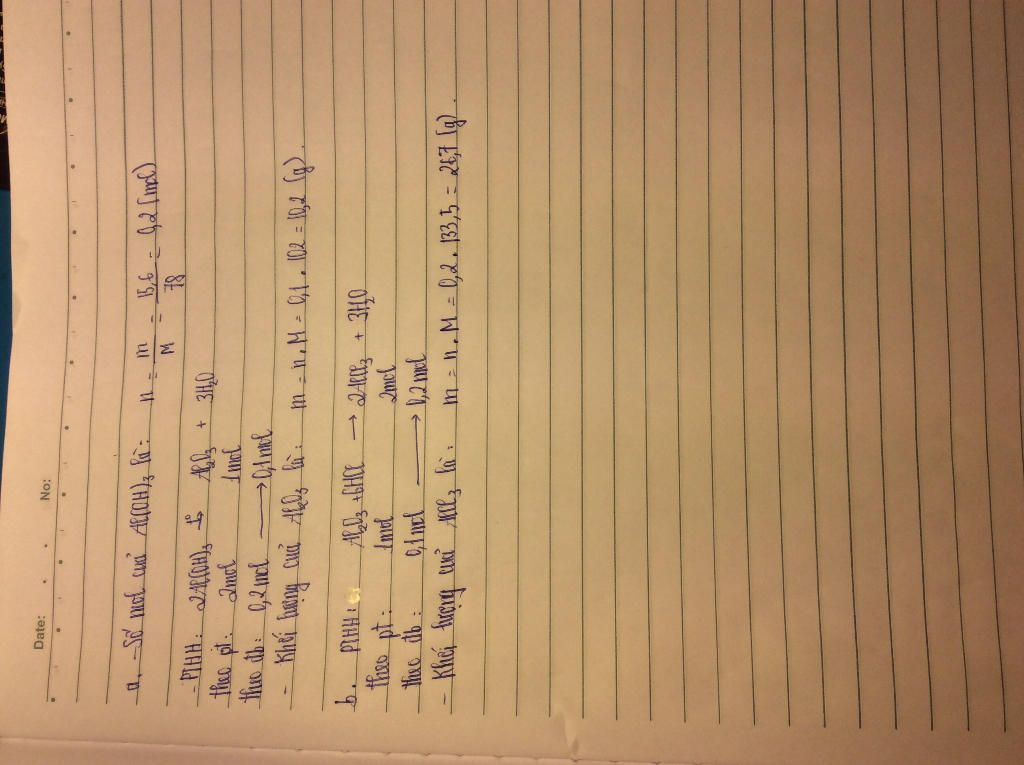 Date: No:
a, - Số mol của Al(OH)₃ là: n = m/M = 15,6/78 = 0,2 (mol)
- PTHH: 2Al(OH)₃ t°→ Al₂O₃ + 3H₂O
theo pt: 2mol 1mol
theo đb: 0,2mol → 0,1mol
- Khối lượng của Al₂O₃ là: m = n . M = 0,1 . 102 = 10,2 (g).
b. PTHH: Al₂O₃ + 6HCl → 2AlCl₃ + 3H₂O
theo pt: 1mol 2mol
theo đb: 0,1mol → 0,2mol
- Khối lượng của AlCl₃ là: m = n . M = 0,2 . 133,5 = 26,7 (g).